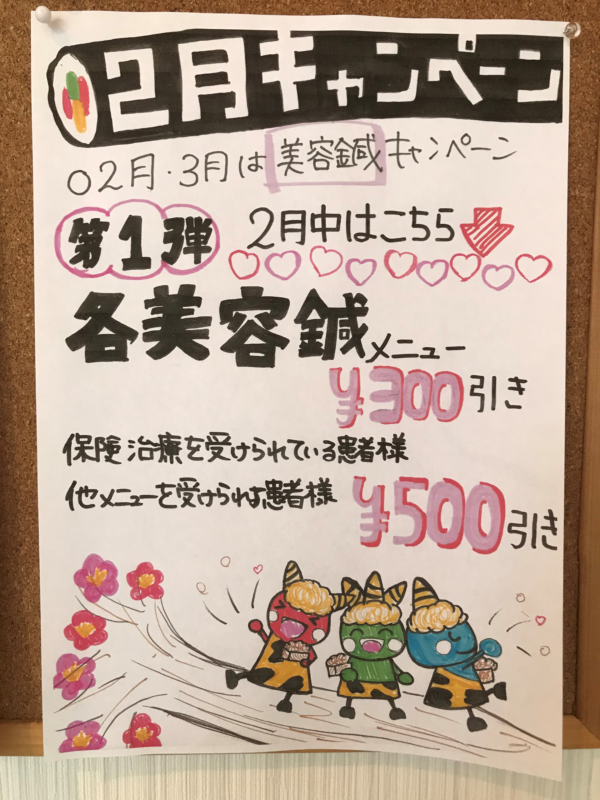 2月キャンペーン
○2月・3月は美容鍼キャンペーン
第1弾 2月中はこちら
各美容鍼メニュー
¥300引き
保険治療を受けられている患者様
他メニューを受けられる患者様 ¥500引き